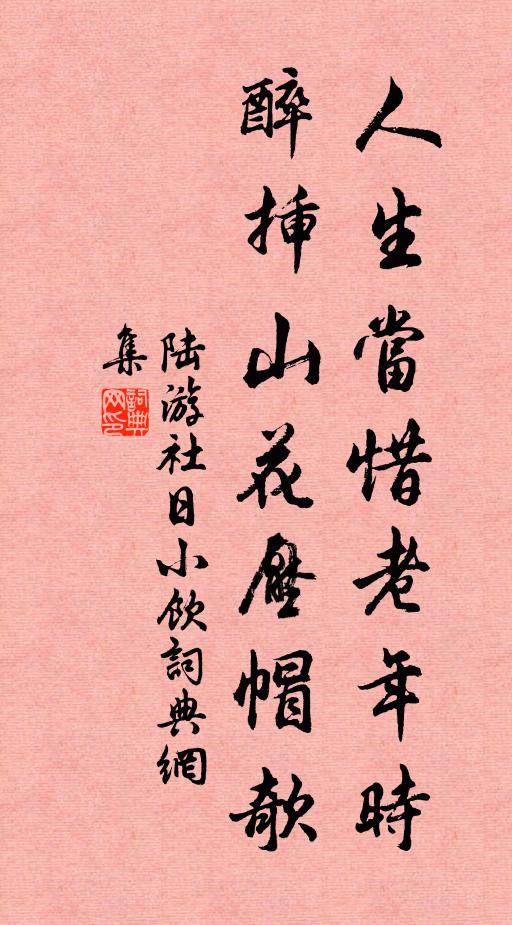 人生當惜老年時
醉挿山花壓帽欹
陆游社日小飲詞典網
集
詞典网印